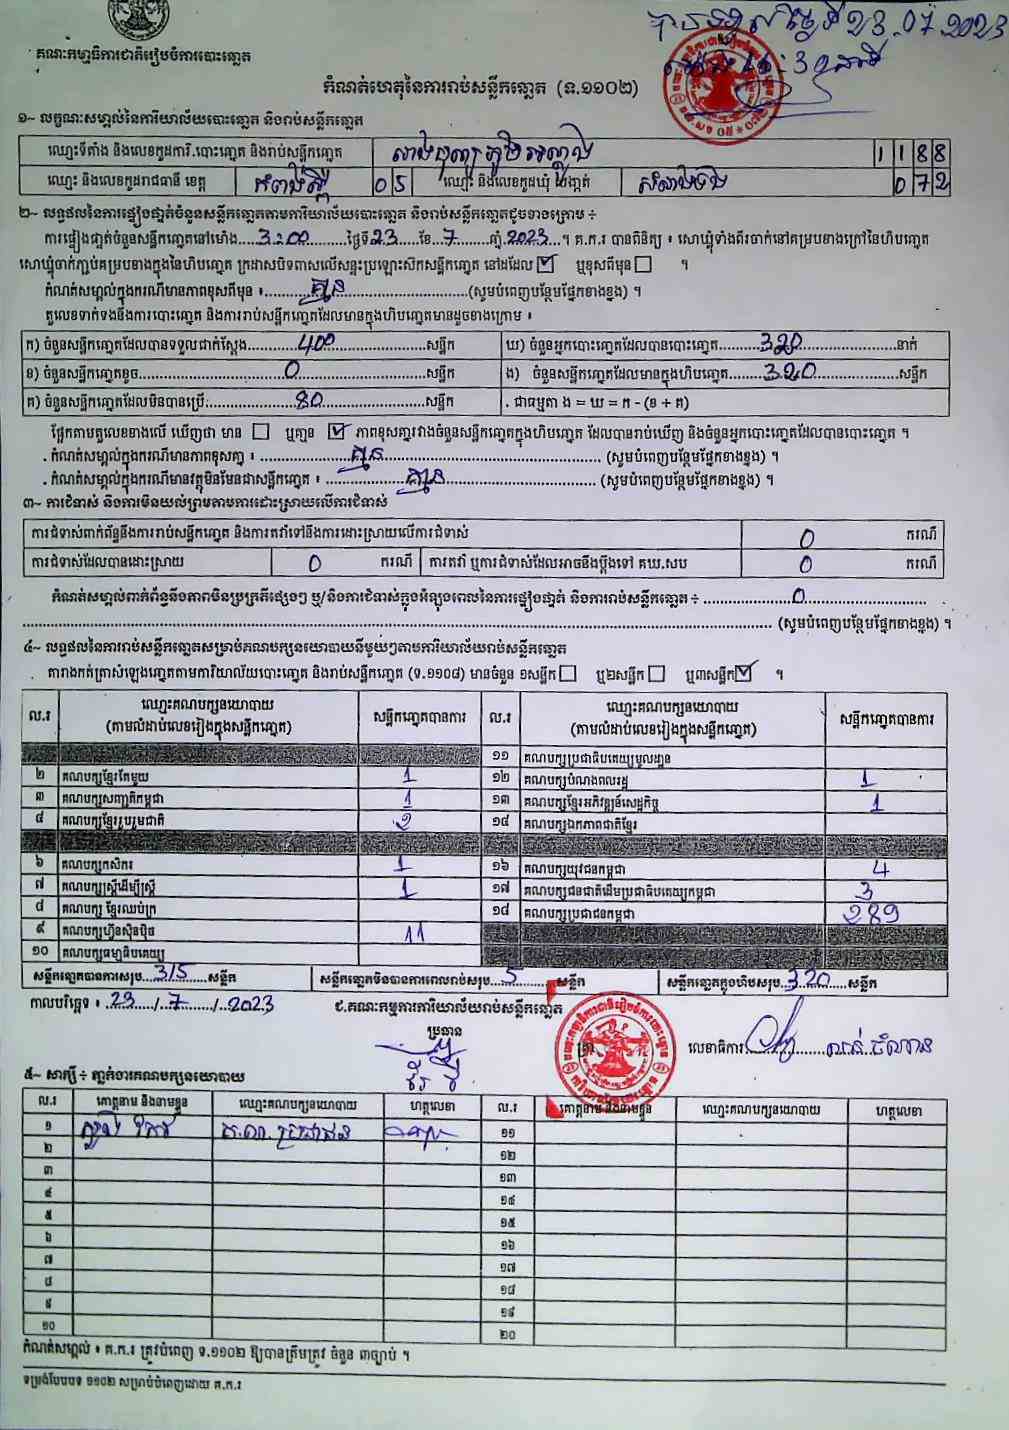 គណៈកម្មាធិការជាតិរៀបចំការបោះឆ្នោត
ថ្ងៃទី 23.07.2023
កំណត់ហេតុនៃការរាប់សន្លឹកឆ្នោត (ទ.១១០២)
១~ លក្ខណៈសម្គាល់នៃការិយាល័យបោះឆ្នោត និងរាប់សន្លឹកឆ្នោត
ឈ្មោះទីតាំង និងលេខកូដការិ.បោះឆ្នោត និងរាប់សន្លឹកឆ្នោត 1188
ឈ្មោះ និងលេខកូដរាជធានី ខេត្ត កំពង់ស្ពឺ 05 ឈ្មោះ និងលេខកូដឃុំ សង្កាត់ 072
២~ លទ្ធផលនៃការផ្ទៀងផ្ទាត់ចំនួនសន្លឹកឆ្នោតតាមការិយាល័យបោះឆ្នោត និងរាប់សន្លឹកឆ្នោតដូចខាងក្រោម ÷
ការផ្ទៀងផ្ទាត់ចំនួនសន្លឹកឆ្នោតនៅម៉ោង....3:00....ថ្ងៃទី 23....ខែ..7....ឆ្នាំ.2023...។ គ.ក.រ បានពិនិត្យ ៖ សោឃ្លុំទាំងពីរចាក់នៅគម្របខាងក្រៅនៃហិបឆ្នោត
សោឃ្លុំចាក់ភ្ជាប់គម្របខាងក្នុងនៃហិបឆ្នោត ក្រដាសបិទពាសលើសន្ទះប្រឡោះសឹកសន្លឹកឆ្នោត នៅដដែល ☑ ឬខុសពីមុន ☐ ។
កំណត់សម្គាល់ក្នុងករណីមានភាពខុសពីមុន ៖......គ្មាន......(សូមបំពេញបន្ថែមផ្នែកខាងខ្នង) ។
តួលេខទាក់ទងនឹងការបោះឆ្នោត និងការរាប់សន្លឹកឆ្នោតដែលមានក្នុងហិបឆ្នោតមានដូចខាងក្រោម ៖
ក) ចំនួនសន្លឹកឆ្នោតដែលបានទទួលជាក់ស្តែង.......400.......សន្លឹក ឃ) ចំនួនអ្នកបោះឆ្នោតដែលបានបោះឆ្នោត.......320.......នាក់
ខ) ចំនួនសន្លឹកឆ្នោតខូច.......0.......សន្លឹក ង) ចំនួនសន្លឹកឆ្នោតដែលមានក្នុងហិបឆ្នោត.......320.......សន្លឹក
គ) ចំនួនសន្លឹកឆ្នោតដែលមិនបានប្រើ.......80.......សន្លឹក . ជាធម្មតា ង = ឃ = ក - (ខ + គ)
ផ្អែកតាមតួលេខខាងលើ ឃើញថា មាន ☐ ឬគ្មាន ☑ ភាពខុសគ្នារវាងចំនួនសន្លឹកឆ្នោតក្នុងហិបឆ្នោត ដែលបានរាប់ឃើញ និងចំនួនអ្នកបោះឆ្នោតដែលបានបោះឆ្នោត ។
. កំណត់សម្គាល់ក្នុងករណីមានភាពខុសគ្នា ៖ .......គ្មាន....... (សូមបំពេញបន្ថែមផ្នែកខាងខ្នង) ។
. កំណត់សម្គាល់ក្នុងករណីមានវត្ថុមិនមែនជាសន្លឹកឆ្នោត ៖ .......គ្មាន....... (សូមបំពេញបន្ថែមផ្នែកខាងខ្នង) ។
៣~ ការជំទាស់ និងការមិនយល់ព្រមតាមការដោះស្រាយលើការជំទាស់
ការជំទាស់ពាក់ព័ន្ធនឹងការរាប់សន្លឹកឆ្នោត និងការតវ៉ាទៅនឹងការដោះស្រាយលើការជំទាស់ 0 ករណី
ការជំទាស់ដែលបានដោះស្រាយ 0 ករណី ការតវ៉ា ឬការជំទាស់ដែលអាចនឹងប្តឹងទៅ គឃ.សប 0 ករណី
កំណត់សម្គាល់ពាក់ព័ន្ធនឹងភាពមិនប្រក្រតីផ្សេងៗ ឬ/និងការជំទាស់ក្នុងអំឡុងពេលនៃការផ្ទៀងផ្ទាត់ និងការរាប់សន្លឹកឆ្នោត ÷ .......0.......
....... (សូមបំពេញបន្ថែមផ្នែកខាងខ្នង) ។
៤~ លទ្ធផលនៃការរាប់សន្លឹកឆ្នោតសម្រាប់គណបក្សនយោបាយនីមួយៗតាមការិយាល័យរាប់សន្លឹកឆ្នោត
តារាងកត់ត្រាសំឡេងឆ្នោតតាមការិយាល័យបោះឆ្នោត និងរាប់សន្លឹកឆ្នោត (ទ.១១០៨) មានចំនួន ១សន្លឹក ☐ ឬ២សន្លឹក ☐ ឬ៣សន្លឹក ☑ ។
ល.រ ឈ្មោះគណបក្សនយោបាយ (តាមលំដាប់លេខរៀងក្នុងសន្លឹកឆ្នោត) សន្លឹកឆ្នោតបានការ ល.រ ឈ្មោះគណបក្សនយោបាយ (តាមលំដាប់លេខរៀងក្នុងសន្លឹកឆ្នោត) សន្លឹកឆ្នោតបានការ
១១ គណបក្សប្រជាធិបតេយ្យមូលដ្ឋាន
២ គណបក្សខ្មែរតែមួយ 1 ១២ គណបក្សបំណងពលរដ្ឋ 1
៣ គណបក្សសញ្ជាតិកម្ពុជា 1 ១៣ គណបក្សខ្មែរអភិវឌ្ឍន៍សេដ្ឋកិច្ច 1
៤ គណបក្សខ្មែររួបរួមជាតិ 2 ១៤ គណបក្សឯកភាពជាតិខ្មែរ
៦ គណបក្សកសិករ 1 ១៦ គណបក្សយុវជនកម្ពុជា 4
៧ គណបក្សស្ត្រីដើម្បីស្ត្រី 1 ១៧ គណបក្សជនជាតិដើមប្រជាធិបតេយ្យកម្ពុជា 3
៨ គណបក្ស ខ្មែរឈប់ក្រ ១៨ គណបក្សប្រជាជនកម្ពុជា 289
៩ គណបក្សហ៊្វុនស៊ិនប៉ិច 11
១០ គណបក្សធម្មាធិបតេយ្យ
សន្លឹកឆ្នោតបានការសរុប...315...សន្លឹក សន្លឹកឆ្នោតមិនបានការពេលរាប់សរុប...5...សន្លឹក សន្លឹកឆ្នោតក្នុងហិបសរុប...320...សន្លឹក
កាលបរិច្ឆេទ ៖ ..23.../...7.../...2023 ជ.គណៈកម្មការការិយាល័យរាប់សន្លឹកឆ្នោត
ប្រធាន
ត្រា លេខាធិការ
៥~ សាក្សី ÷ ភ្នាក់ងារគណបក្សនយោបាយ
ល.រ គោត្តនាម និងនាមខ្លួន ឈ្មោះគណបក្សនយោបាយ ហត្ថលេខា ល.រ គោត្តនាម និងនាមខ្លួន ឈ្មោះគណបក្សនយោបាយ ហត្ថលេខា
១ គ.ប ប្រជាជន ១១
២ ១២
៣ ១៣
៤ ១៤
៥ ១៥
៦ ១៦
៧ ១៧
៨ ១៨
៩ ១៩
១០ ២០
កំណត់សម្គាល់ ៖ គ.ក.រ ត្រូវបំពេញ ទ.១១០២ ឱ្យបានត្រឹមត្រូវ ចំនួន ៣ច្បាប់ ។
ទម្រង់បែបបទ ១១០២ សម្រាប់បំពេញដោយ គ.ក.រ